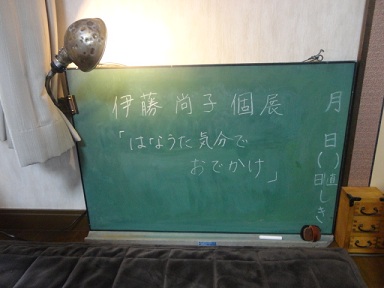 伊藤尚子個展
「はなうた気分で
おでかけ」
月
日
( )
日直
しき